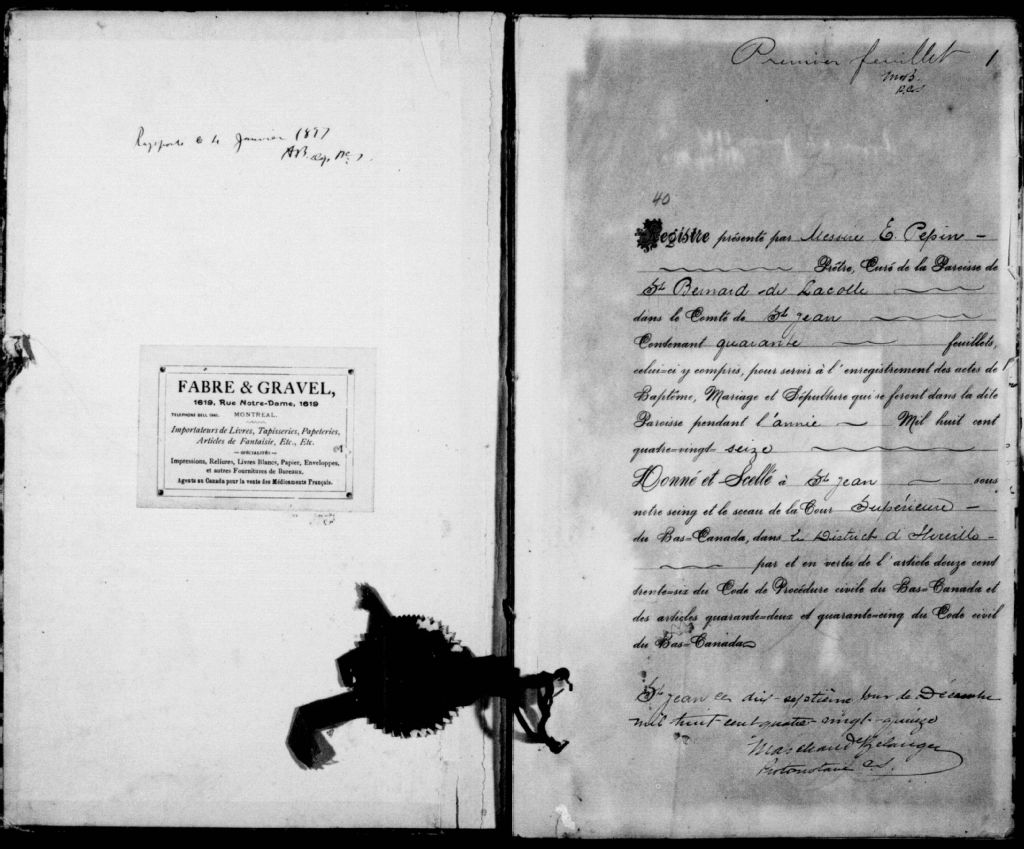 Janvier 1897
FABRE & GRAVEL,
1619, Rue Notre-Dame, 1619
TELEPHONE BELL
MONTREAL.
Importateurs de Livres, Tapisseries, Papeteries,
Articles de Fantaisie, Etc., Etc.
—SPÉCIALITÉS—
Impressions, Reliures, Livres Blancs, Papier, Enveloppes,
et autres Fournitures de Bureaux.
Agents au Canada pour la vente des Médicaments Français.
Premier feuillet 1
40
Registre présenté par Messire E. Pepin -
Prêtre, Curé de la Paroisse de
St Bernard de Lacolle
dans le Comté de St Jean
Contenant quarante feuillets,
celui=ci y compris, pour servir à l'enregistrement des actes de
Baptême, Mariage et Sépulture qui se feront dans la dite
Paroisse pendant l'année Mil huit cent
quatre=vingt= seize
Donné et Scellé à St Jean sous
notre seing et le sceau de la Cour Supérieure -
du Bas=Canada, dans le District d'Iberville -
par et en vertu de l'article douze cent
trente=six du Code de Procédure civile du Bas=Canada et
des articles quarante=deux et quarante=cinq du Code civil
du Bas=Canada
St Jean ce dix-septième jour de Décembre
mil huit cent quatre-vingt-quinze
Marchand & Belanger
Protonotaire C.S.